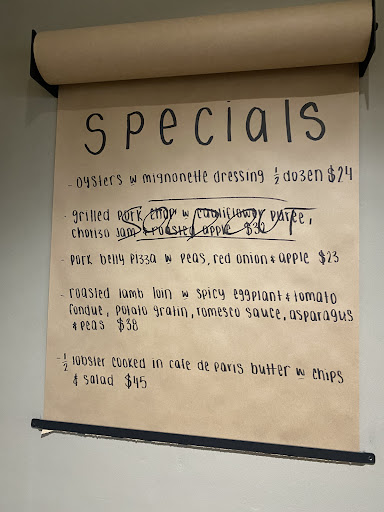 Specials
- oysters w mignonette dressing ½ dozen $24
- grilled pork chop w cauliflower puree,
chorizo jam & roasted apple $32
SOLD OUT
- pork belly pizza w peas, red onion & apple $23
- roasted lamb loin w spicy eggplant & tomato
fondue, potato gratin, romesco sauce, asparagus
& peas $38
- ½ lobster cooked in cafe de paris butter w chips
& salad $45